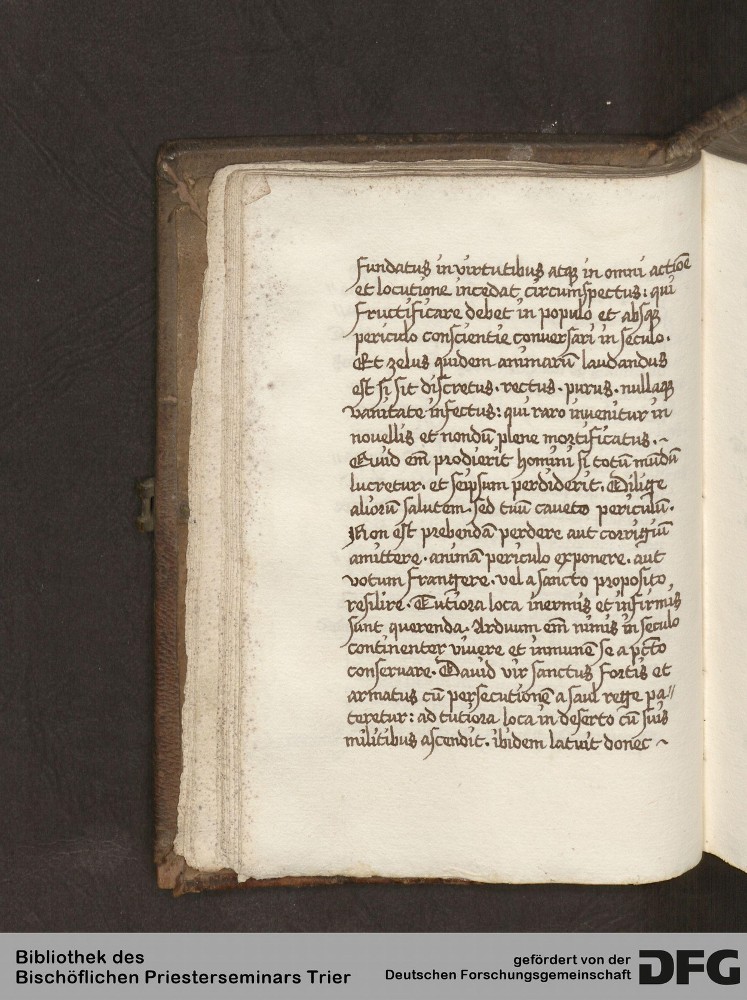 fundatus in virtutibus atqꝫ in omni actiōe
et locutione incedat circumspectus: qui
fructificare debet in populo et absqꝫ
periculo conscientie conversari in seculo.
Et zelus quidem animarū laudandus
est si sit discretus. rectus. purus. nullaqꝫ
vanitate infectus: qui raro invenitur in
novellis et nondū plene mortificatus. ~
Quid em̄ prodierit homini si totū mūdū
lucretur. et seipsum perdiderit. Dilige
aliorū salutem. sed tuū caveto periculū.
Non est prebendā perdere aut corrigiū
amittere. animā periculo exponere. aut
votum frangere. vel a sancto proposito
resilire. Tutiora loca inermis et infirmis
sunt querenda. Arduum em̄ nimis in seculo
continenter vivere et inmunē se a pctō
conservare. David vir sanctus fortis et
armatus cū persecutionē a saul rege pa//
teretur: ad tutiora loca in deserto cū suis
militibus ascendit. ibidem latuit donec ~
Bibliothek des
Bischöflichen Priesterseminars Trier
gefördert von der
Deutschen Forschungsgemeinschaft
DFG